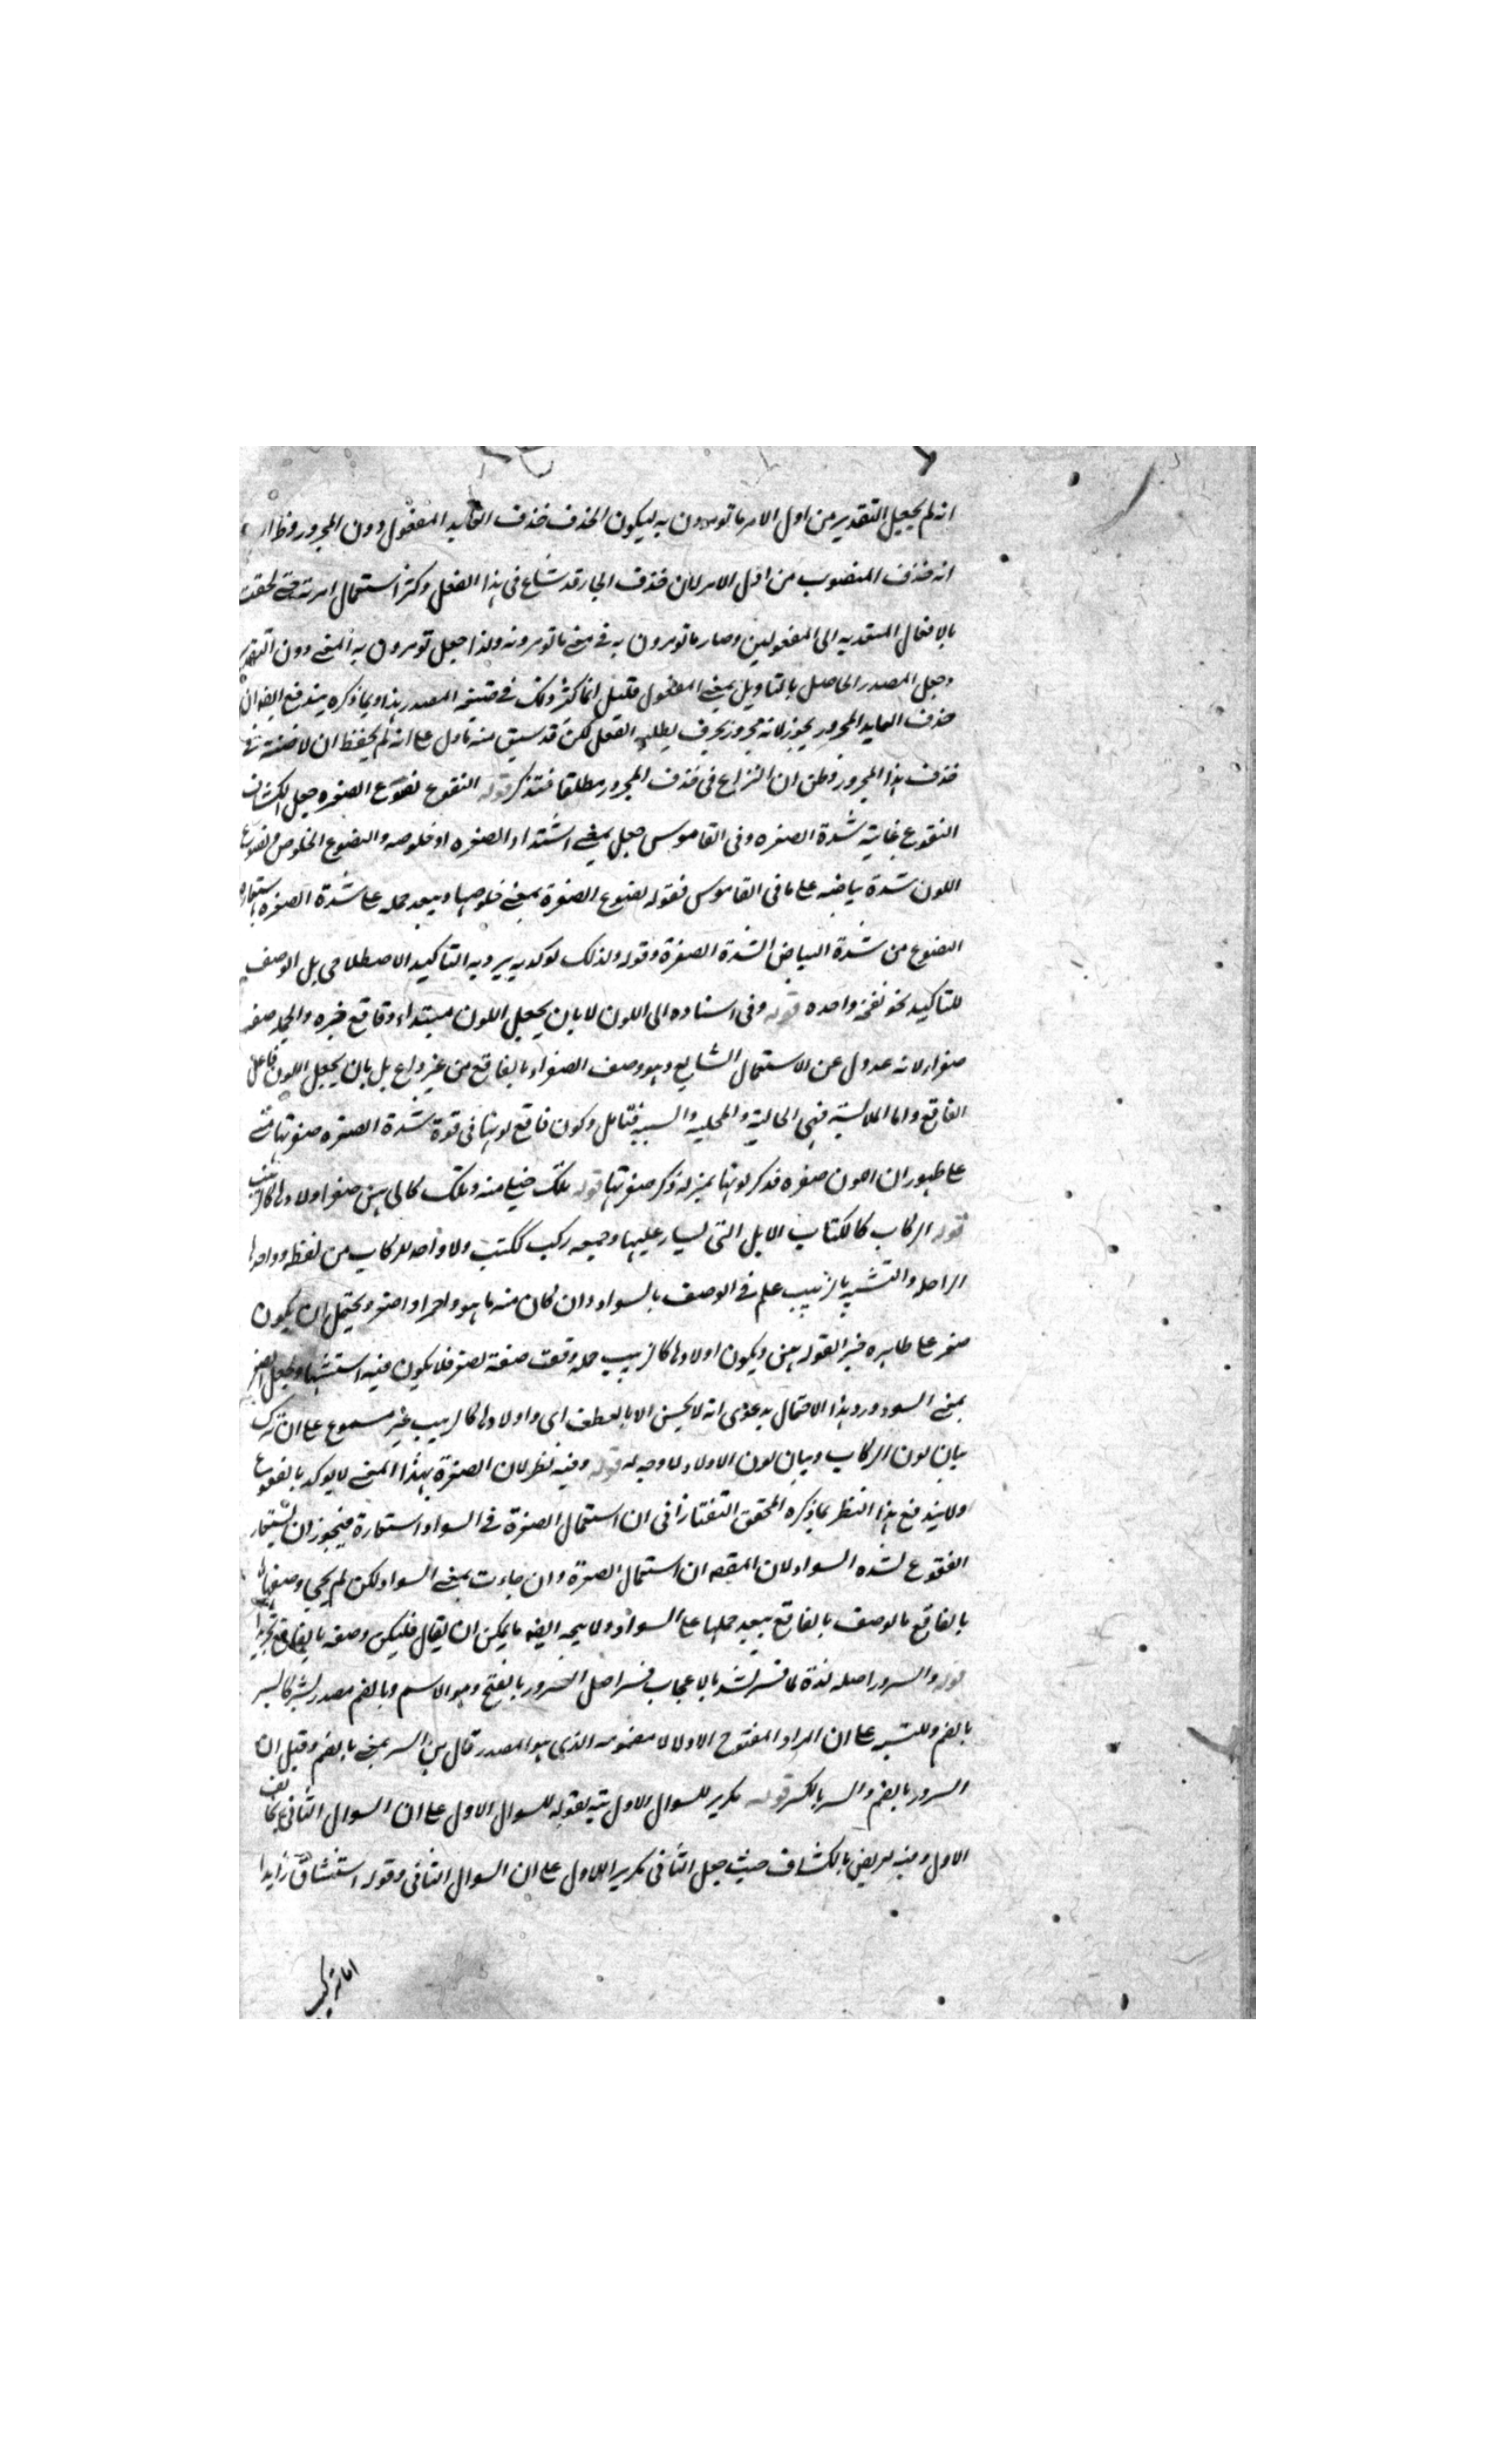 انه لم يجعل التقدير من اول الامر ما تومرون به ليكون الحذف حذف العايد المفعول دون المجرور
انه حذف المنصوب من اول الامر لان حذف الجار قد شاع فى هذا الفعل وكثر استعمال امرته حتى لحقت
بالافعال المتعديه الى المفعولين وصار ما تومرون به فى معنى ما تومرونه ولذا جعل تومرون به المعنى دون التقدير
وجعل المصدر الحاصل بالتاويل بمعنى المفعول قليل انما كثر ذلك فى صيغه المصدر هذا وبما ذكره يندفع ايضا ان
حذف العايد المجرور يجوز لانه مجرور بحرف يطلبه الفعل لكن قد سبق منه
حذف هذا المجرور وظن ان النزاع فى حذف المجرور مطلقا فتذكر قوله الفقوع نصوع الصفره جعل الكشاف
الفقوع غايته شدة الصفره وفى القاموس جعل بمعنى اشتداد الصفره او خلوصه والنصوع الخلوص ونصوع
اللون شدة بياضه على ما فى القاموس فقوله نصوع الصفرة بمعنى خلوصها ويبعد حمله على شدة الصفره استعاره
النصوع من شدة البياض لشدة الصفرة وقوله ولذلك توكد به يريد به التاكيد الاصطلاحى بل الوصف
للتاكيد نحو نفخه واحده قوله وفى اسناده الى اللون لا بان يجعل اللون مبتداء وفاقع خبره والجمله صفه
صفراء لانه عدول عن الاستعمال الشايع وهو وصف الصفراء بالفاقع من غير داع بل بان يجعل اللون فاعل
الفاقع واما الملابسة فهى الحالية والمحلية والسببيه فتامل وكون فاقع لونها فى قوة شدة الصفره صفرتها
على ظهور ان صفره فذكر لونها بمنزله ذكر صفرتها قوله تلك خيلى منه وتلك ركابى هن صفر اولادها كالزبيب
قوله الركاب كالكتاب الابل التى يسار عليها وجمعه ركب ككتب ولا واحد للركاب من لفظه وواحدها
الراحله والتشبيه بالزبيب علم فى الوصف بالسواد وان كان منه ما هو احمر او اصفر ويحتمل ان يكون
صفر على ظاهره خبرا لقوله هن ويكون اولادها كالزبيب جمله وقعت صفة لصفر فلا يكون فيه استشهاد
بمعنى السود ورد هذا الاحتمال بدعوى انه لا يحسن الا بالعطف اى واولادها كالزبيب غير مسموع على ان ترك
بيان لون الركاب وبيان لون الاولاد لا وجه له قوله وفيه نظر لان الصفرة بهذا المعنى لا يوكد بالفقوع
ولا يندفع هذا النظر بما ذكره المحقق التفتازانى ان استعمال الصفرة فى السواد استعارة فيجوز ان يستعار
الفقوع لشده السواد لان المقصود ان استعمال الصفرة وان جاءت بمعنى السواد لكن لم يجى وصفها
بالفاقع فالوصف بالفاقع يبعد حملها على السواد ولا يتجه ايضا ما يمكن ان يقال فليكن وصفه بالفاقع
قوله والسرور اصله لذة لما فسر تسر بالاعجاب فسر اصل السرور بالفتح وهو الاسم وبالضم مصدر
بالضم وللتنبيه على ان المراد المفتوح الاول لا مضمومه الذى هو المصدر قال بين السر بمعنى بالضم وقيل ان
السرور بالضم والسر بالكسر قوله تكرير للسوال الاول نبه بقوله للسوال الاول على ان السوال الثانى يخالف
الاول وفيه تعريض بالكشاف حيث جعل الثانى تكريرا للاول على ان السوال الثانى وقوله استكشاف زايد